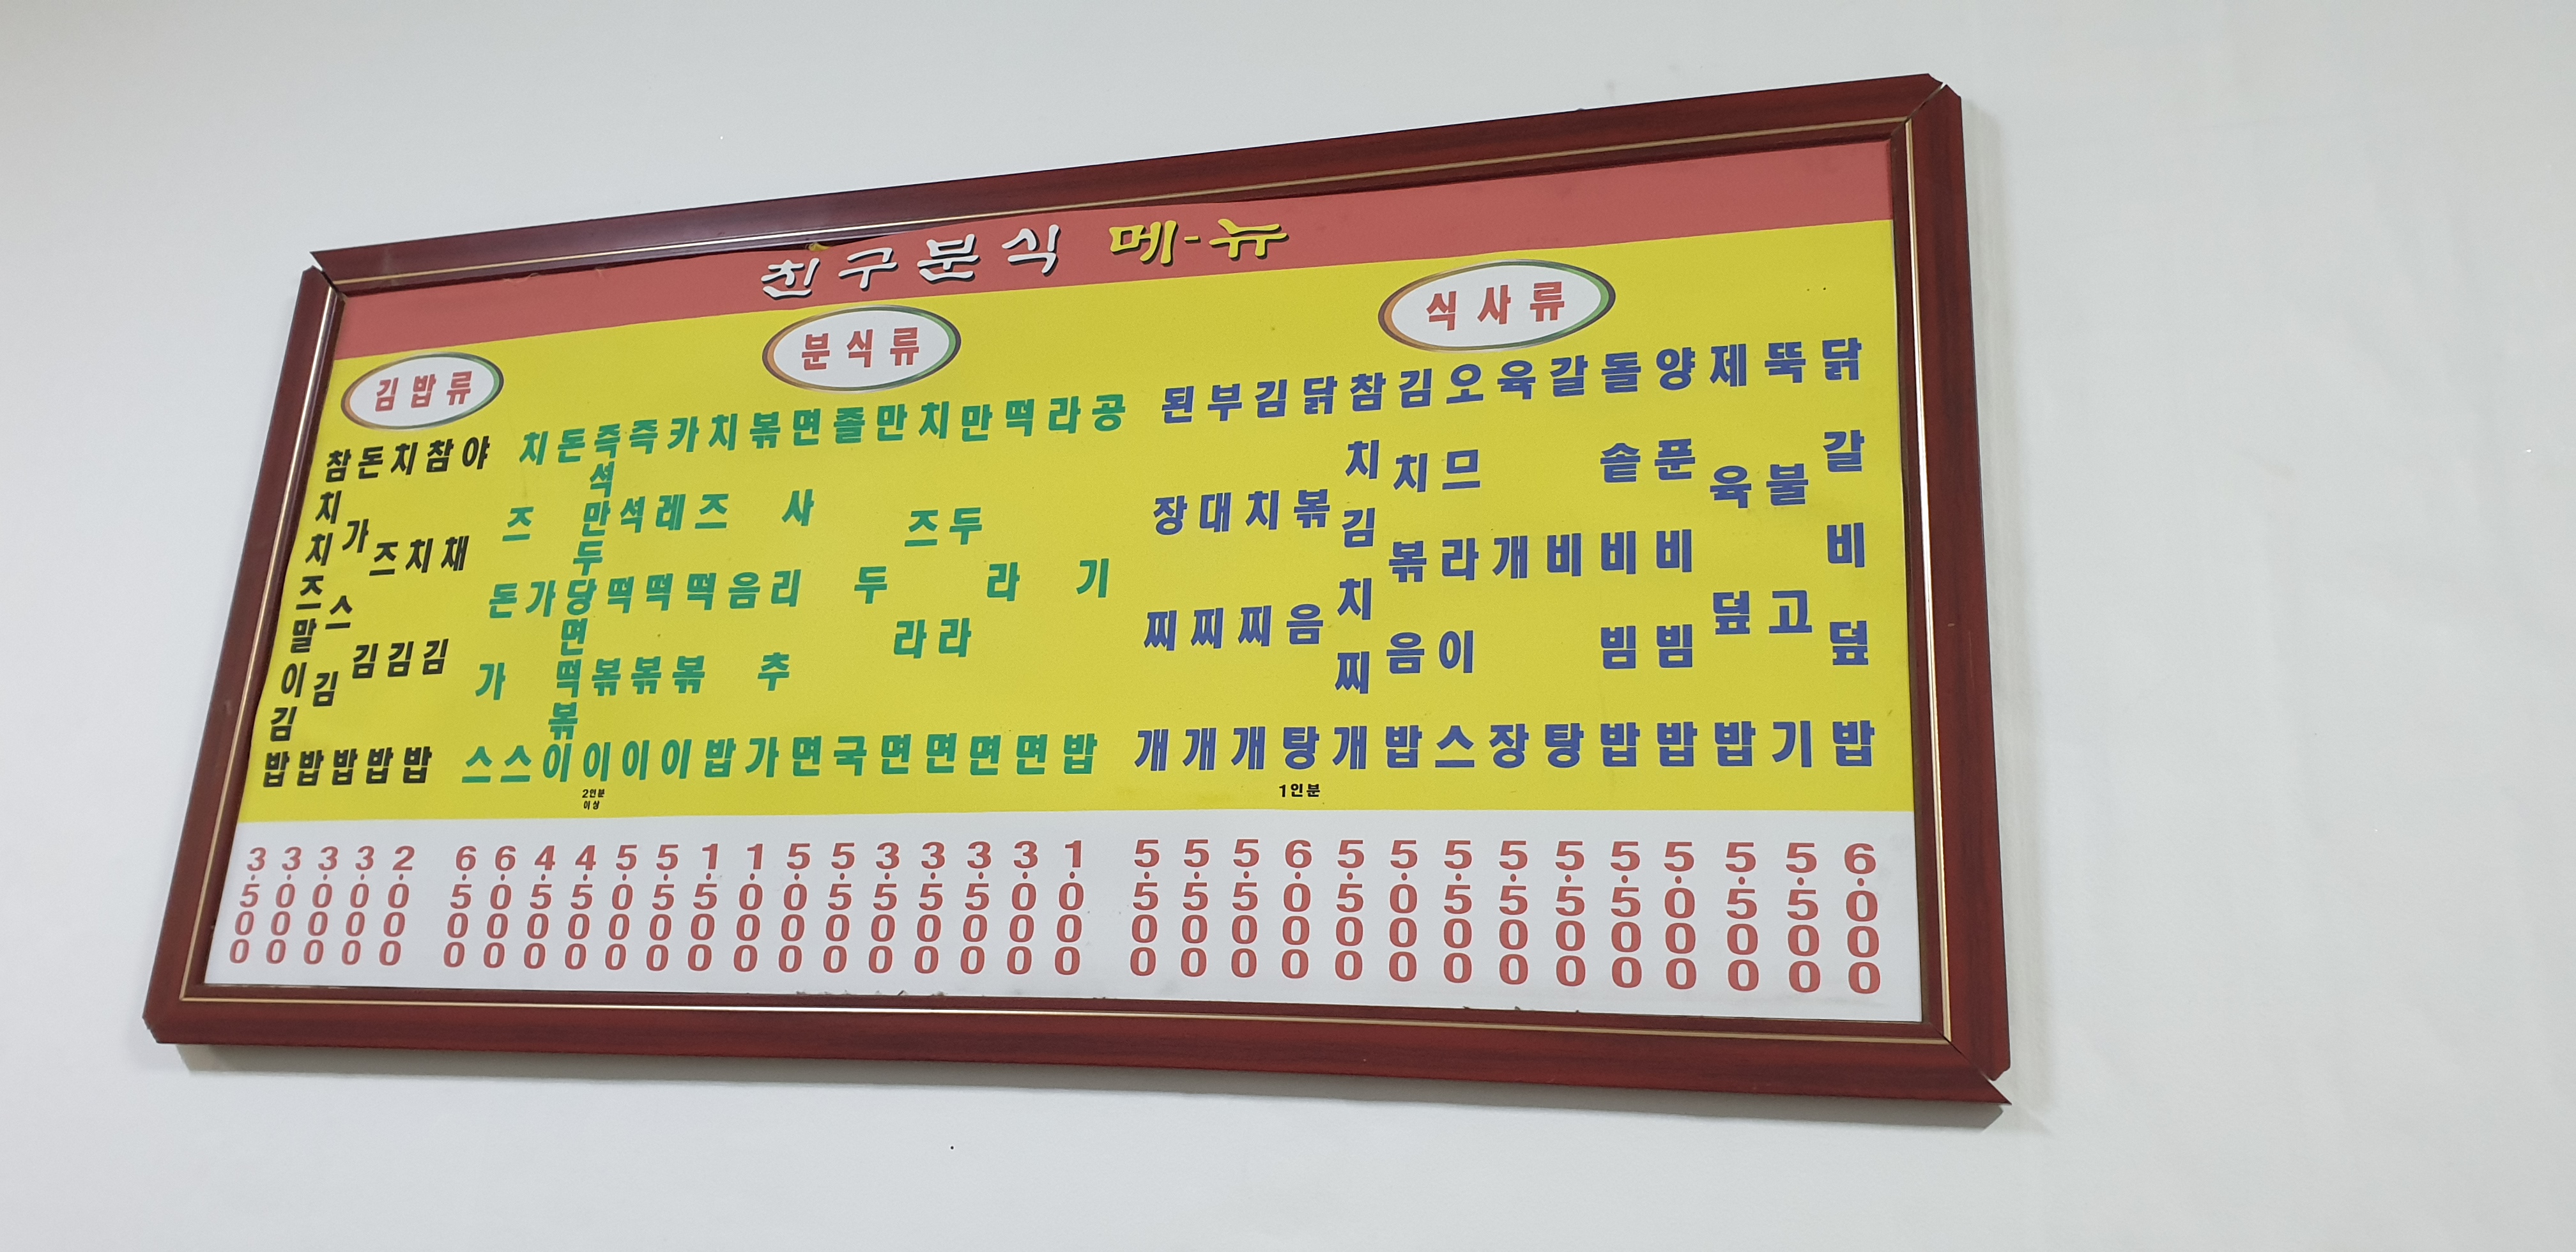 친구분식 메-뉴
김밥류
참치치즈말이김밥 3.500
돈가스김밥 3.000
치즈김밥 3.000
참치김밥 3.000
야채김밥 2.000
분식류
치즈돈가스 6.500
돈가스 6.000
즉석만두당면떡볶이 4.500
즉석떡볶이 4.500
2인분
이상
카레떡볶이 5.000
치즈떡볶이 5.500
볶음밥 1.500
면사리추가 1.000
쫄면 5.000
만두국 5.500
치즈라면 3.500
만두라면 3.500
떡라면 3.500
라면 3.000
공기밥 1.000
식사류
된장찌개 5.500
부대찌개 5.500
김치찌개 5.500
닭볶음탕 1인분 6.000
참치김치찌개 5.500
김치볶음밥 5.000
오므라이스 5.500
육개장 5.500
갈비탕 5.500
돌솥비빔밥 5.500
양푼비빔밥 5.000
제육덮밥 5.500
뚝불고기 5.500
닭갈비덮밥 6.000